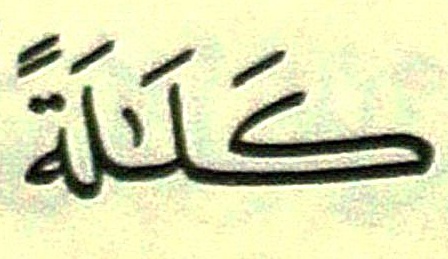 كَلَـٰلَةً